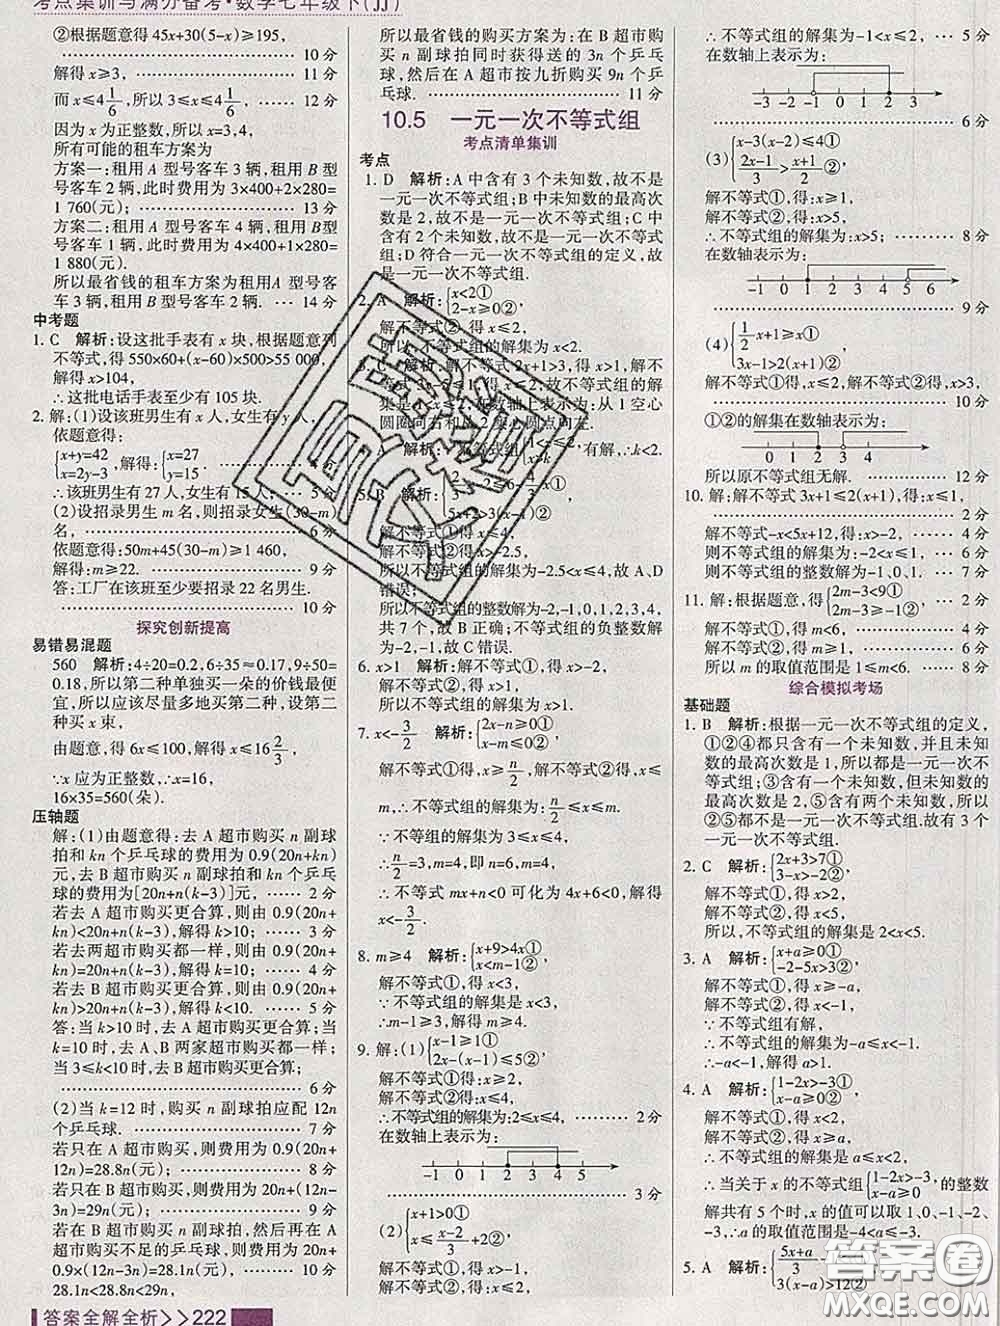 考点集训与满分备考·数学七年级下(JJ)
②根据题意得 45x+30(5-x)≥195,
…… 10 分
解得 x≥3, …… 11 分
而 x≤4 1/6,所以 3≤x≤4 1/6, …… 12 分
因为 x 为正整数,所以 x=3,4,
所有可能的租车方案为
方案一:租用 A 型号客车 3 辆,租用 B 型
号客车 2 辆,此时费用为 3×400+2×280=
1 760(元); …… 13 分
方案二:租用 A 型号客车 4 辆,租用 B 型
号客车 1 辆,此时费用为 4×400+1×280=
1 880(元).
所以最省钱的租车方案为租用 A 型号客
车 3 辆,租用 B 型号客车 2 辆. …… 14 分
中考题
1. C 解析:设这批手表有 x 块,根据题意列
不等式,得 550×60+(x-60)×500>55 000,
解得 x>104,
∴这批电话手表至少有 105 块.
2. 解:(1)设该班男生有 x 人,女生有 y 人,
依题意得:
{x+y=42
x=2y-3, 解得:{x=27
y=15. …… 4 分
∴该班男生有 27 人,女生有 15 人; … 5 分
(2)设招录男生 m 名,则招录女生(30-m)
名, …… 6 分
依题意得:50m+45(30-m)≥1 460,
解得:m≥22. …… 9 分
答:工厂在该班至少要招录 22 名男生.
…… 10 分
探究创新提高
易错易混题
560 解析:4÷20=0.2,6÷35≈0.17,9÷50=
0.18,所以第二种单独买一朵的价钱最便
宜,所以应该尽量多地买第二种,设第二
种买 x 束,
由题意,得 6x≤100,解得 x≤16 2/3,
∵x 应为正整数,∴x=16,
16×35=560(朵).
压轴题
解:(1)由题意得:去 A 超市购买 n 副球
拍和 kn 个乒乓球的费用为 0.9(20n+kn)
元,去 B 超市购买 n 副球拍和 kn 个乒乓
球的费用为[20n+n(k-3)]元, …… 2 分
若去 A 超市购买更合算,则由 0.9(20n+
kn)<20n+n(k-3),解得 k>10; …… 3 分
若去两超市购买都一样,则由 0.9(20n+
kn)=20n+n(k-3),解得 k=10; …… 4 分
若去 B 超市购买更合算,则由 0.9(20n+
kn)>20n+n(k-3),解得 k<10. …… 5 分
答:当 k>10 时,去 A 超市购买更合算;当
k=10 时,去 A、B 两家超市购买都一样;
当 3≤k<10 时,去 B 超市购买更合算.
…… 6 分
(2)当 k=12 时,购买 n 副球拍应配 12n
个乒乓球. …… 7 分
若只在 A 超市购买,则费用为 0.9(20n+
12n)=28.8n(元); …… 8 分
若只在 B 超市购买,则费用为 20n+(12n-
3n)=29n(元); …… 9 分
若在 B 超市购买 n 副球拍,然后再在 A
超市购买不足的乒乓球,则费用为 20n+
0.9×(12n-3n)=28.1n(元); …… 10 分
28.1n<28.8n<29n,
答案全解全析>>222
所以最省钱的购买方案为:在 B 超市购
买 n 副球拍同时获得送的 3n 个乒乓
球,然后在 A 超市按九折购买 9n 个乒
乓球. …… 11 分
10.5 一元一次不等式组
考点清单集训
考点
1. D 解析:A 中含有 3 个未知数,故不是
一元一次不等式组;B 中未知数的最高次
数是 2,故不是一元一次不等式组;C 中
含有 2 个未知数,故不是一元一次不等式
组;D 符合一元一次不等式组的定义,故
是一元一次不等式组.
2. A 解析:{x<2①
2-x≥0②,
解不等式②,得 x≤2,
所以,不等式组的解集为 x<2.
3. C 解析:解不等式 2x+1>3,得 x>1,
解不等式 3x-5≤1,得 x≤2,不等式组的解
集是 1<x≤2,在数轴上表示为:从 1 空心
圆圈向右和从 2 实心圆点向左.
有解,∴k<2.
5. B 解析:
解不等式①得 x≤4,
解不等式②得 x>-2.5,
所以不等式组的解集为-2.5<x≤4,故 A、D
错误;
所以不等式组的整数解为-2,-1,0,1,2,3,4,
共 7 个,故 B 正确;不等式组的负整数解
为-2,-1,故 C 错误.
6. x>1 解析:解不等式①,得 x>-2,
解不等式②,得 x>1,
所以不等式组的解集为 x>1.
7. x<-3/2 解析:{2x-n≥0①
x-m≤0②,
解不等式①得,x≥n/2,解不等式②得,x≤
m,∴不等式组的解集为:n/2≤x≤m,
∵不等组的解集为 3≤x≤4,
∴n/2=3,m=4,即 n=6,m=4,
∴不等式 mx+n<0 可化为 4x+6<0,解得
x<-3/2.
8. m≥4 解析:{x+9>4x①
x<m-1②,
解不等式①,得 x<3,
∵不等式组的解集是 x<3,
∴m-1≥3,解得 m≥4.
9. 解:(1){x-1≥1①
2x-(x-1)≤5②,
解不等式①得:x≥2,
解不等式②得:x≤4,
∴不等式组的解集为:2≤x≤4, …… 2 分
在数轴上表示为:
-1 0 1 2 3 4 5
…… 3 分
(2){x+1>0①
x≤(x-2)/3+2②,
解不等式①,得 x>-1,
解不等式②,得 x≤2,
∴不等式组的解集为-1<x≤2, … 5 分
在数轴上表示为:
-3 -2 -1 0 1 2 3
…… 6 分
(3){x-3(x-2)≤4①
(2x-1)/3>(x+1)/2②,
解不等式①,得:x≥1,
解不等式②,得:x>5,
∴不等式组的解集为:x>5; …… 8 分
在数轴上表示为:
0 1 2 3 4 5 6
…… 9 分
(4){1/2x+1≥x①
3x-1>2(x+1)②
解不等式①,得:x≤2,解不等式②,得:x>3,
…… 10 分
①②的解集在数轴上表示为:
-1 0 1 2 3 4 5
所以原不等式组无解. …… 12 分
10. 解:解不等式 3x+1≤2(x+1),得:x≤1,
…… 2 分
解不等式-x<5x+12,得:x>-2, …… 4 分
则不等式组的解集为:-2<x≤1, … 6 分
则不等式组的整数解为-1、0、1. … 7 分
11. 解:根据题意,得{2m-3<9①
2m-3≥-1②, …… 2 分
解不等式①,得 m<6, …… 4 分
解不等式②,得 m≥1, …… 6 分
所以 m 的取值范围是 1≤m<6. … 8 分
综合模拟考场
基础题
1. B 解析:根据一元一次不等式组的定义,
①②④都只含有一个未知数,并且未知
数的最高次数是 1,所以都是一元一次不
等式组;③含有一个未知数,但未知数的
最高次数是 2,⑤含有两个未知数,所以
②⑤都不是一元一次不等式组.故有 3 个
一元一次不等式组.
2. C 解析:{2x+3>7①
3-x>-2②,
解不等式①,得 x>2,
解不等式②,得 x<5,
所以,不等式组的解集是 2<x<5.
3. A 解析:{x+a≥0①
-2-5x>3②,
解不等式①,得 x≥-a,
解不等式②,得 x<-1,
∵不等式组有解,
∴不等式组的解集为-a≤x<-1,
∴-a<-1,解得 a>1.
4. A 解析:{1-2x>-3①
x-a≥0②,
解不等式①,得 x<2,
解不等式②,得 x≥a,
∴不等式组的解集是 a≤x<2,
∴当关于 x 的不等式组{1-2x>-3,
x-a≥0 的整数
解共有 5 个时,x 的值可以取 1、0、-1、-2、
-3,∴a 的取值范围是-4<a≤-3.
5. A 解析:
3(x-a)>12②
答案圈
MXQE.COM